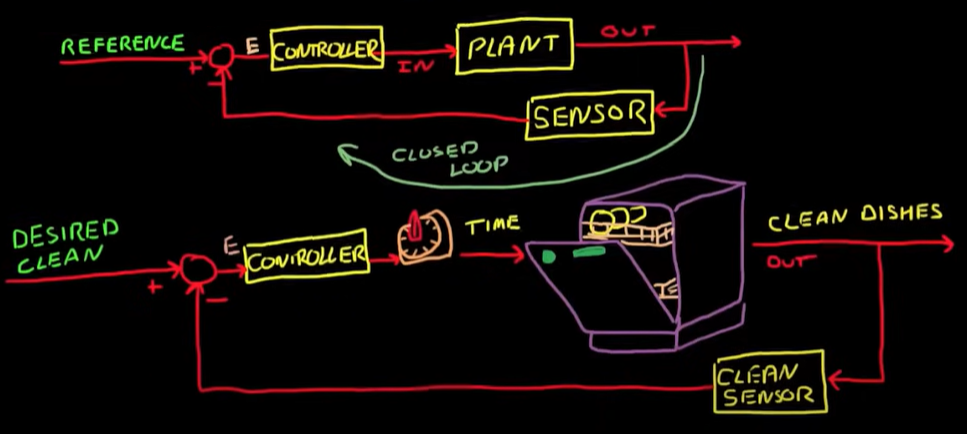 REFERENCE
+
−
E
CONTROLLER
IN
PLANT
OUT
SENSOR
CLOSED
LOOP
DESIRED
CLEAN
+
−
E
CONTROLLER
TIME
CLEAN DISHES
OUT
CLEAN
SENSOR